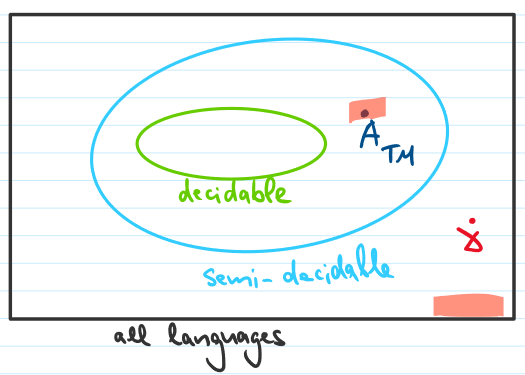 decidable
A TM
semi-decidable
all languages